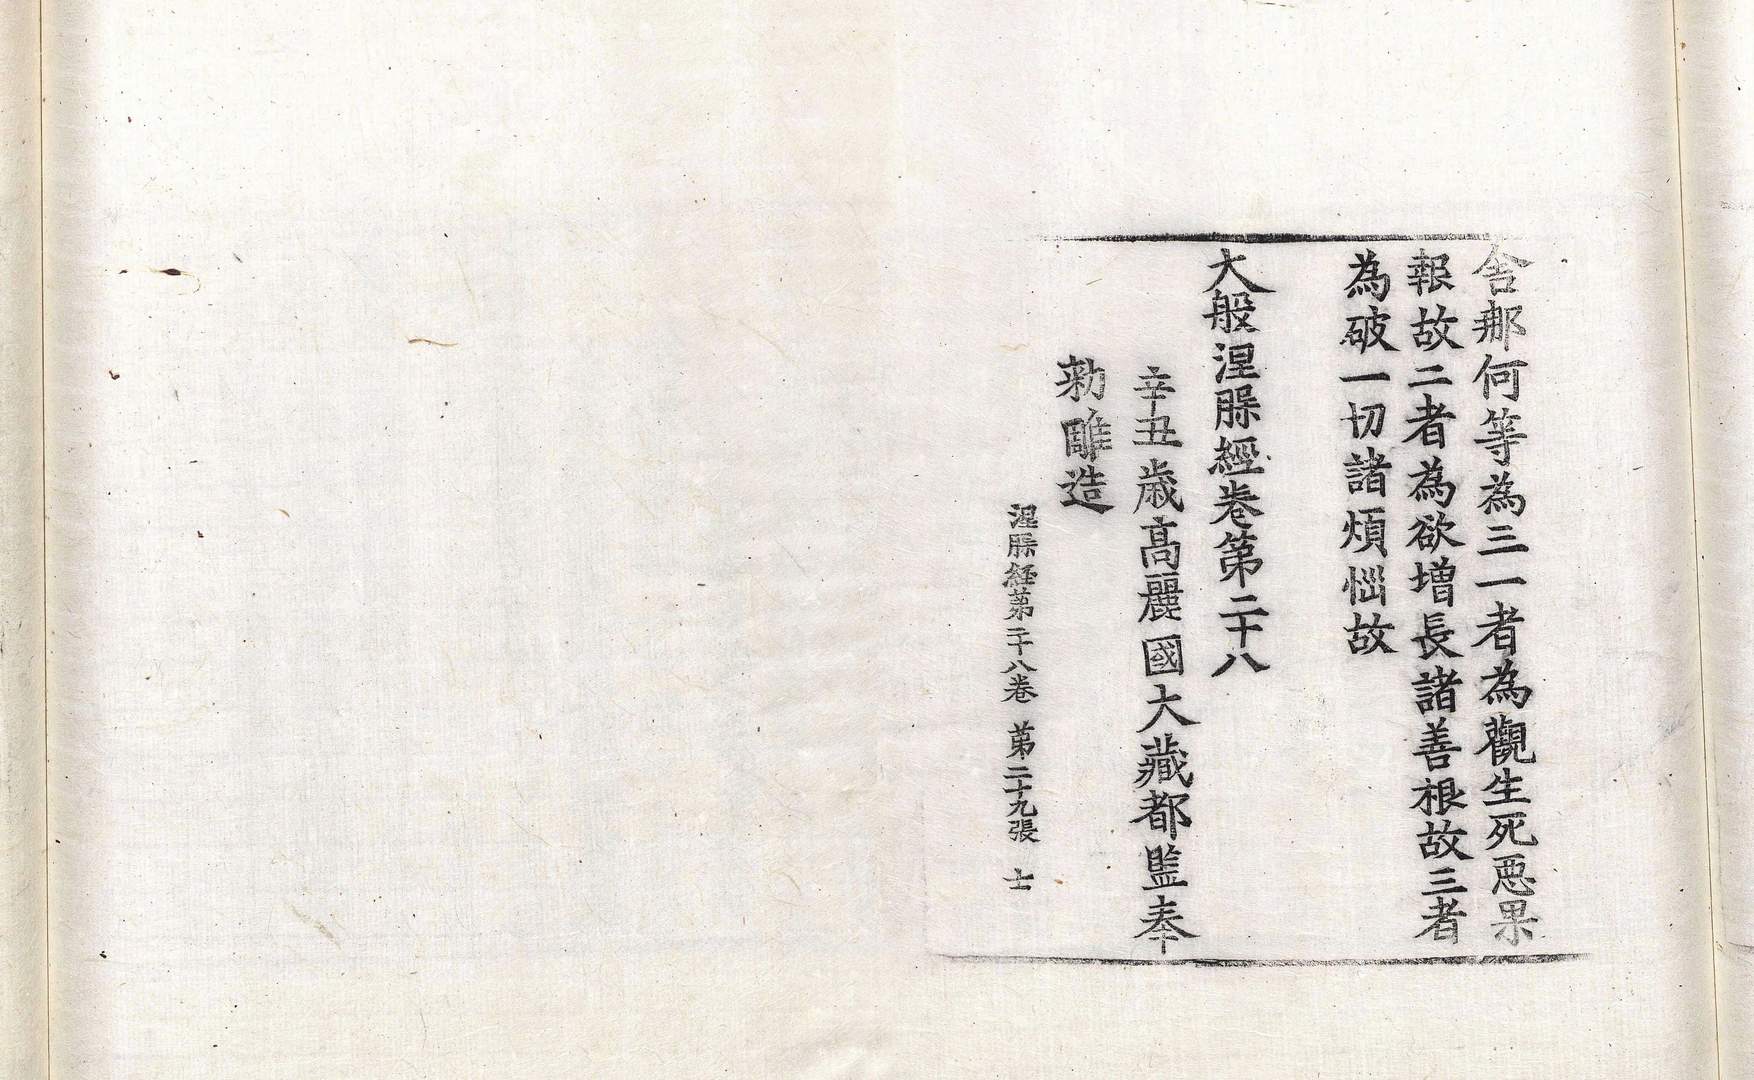 舍那何等為三一者為觀生死惡果
報故二者為欲增長諸善根故三者
為破一切諸煩惱故
大般涅槃經卷第二十八
辛丑歲高麗國大藏都監奉
勅雕造
涅槃經第二十八卷 第二十九張 士